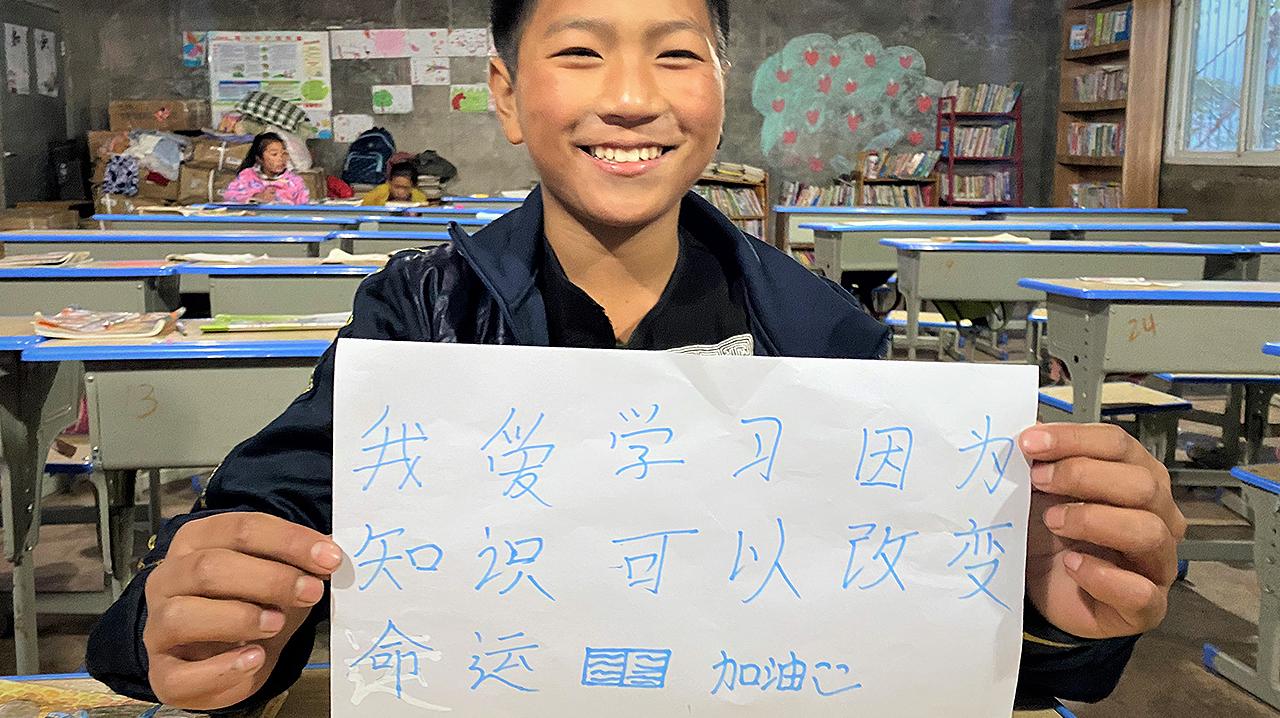 我爱学习因为
知识可以改变
命运 加油
24
13